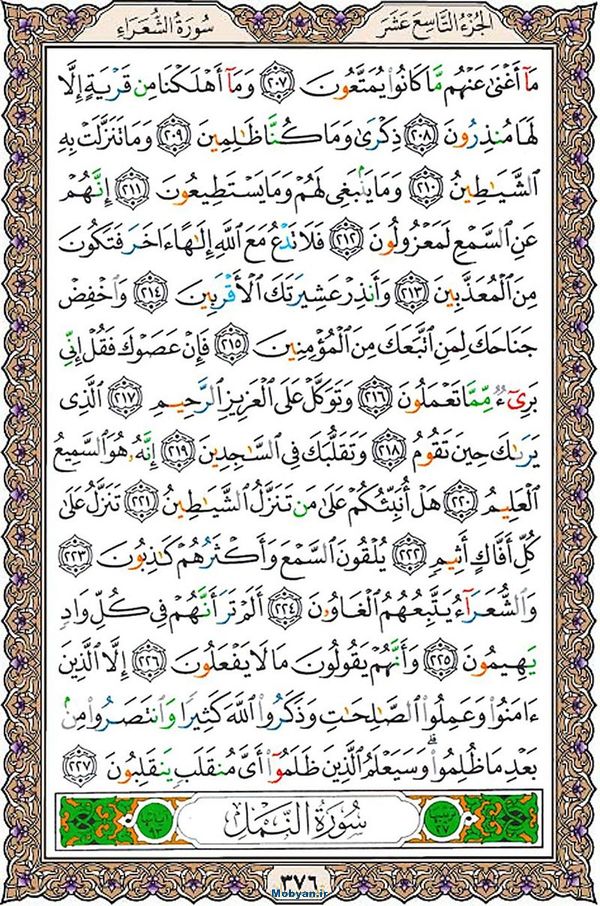 الجزء التاسع عشر
سورة الشعراء
مَآ أَغْنَىٰ عَنْهُم مَّا كَانُوا۟ يُمَتَّعُونَ ﴿٢٠٧﴾ وَمَآ أَهْلَكْنَا مِن قَرْيَةٍ إِلَّا
لَهَا مُنذِرُونَ ﴿٢٠٨﴾ ذِكْرَىٰ وَمَا كُنَّا ظَـٰلِمِينَ ﴿٢٠٩﴾ وَمَا تَنَزَّلَتْ بِهِ
ٱلشَّيَـٰطِينُ ﴿٢١٠﴾ وَمَا يَنۢبَغِى لَهُمْ وَمَا يَسْتَطِيعُونَ ﴿٢١١﴾ إِنَّهُمْ
عَنِ ٱلسَّمْعِ لَمَعْزُولُونَ ﴿٢١٢﴾ فَلَا تَدْعُ مَعَ ٱللَّهِ إِلَـٰهًا ءَاخَرَ فَتَكُونَ
مِنَ ٱلْمُعَذَّبِينَ ﴿٢١٣﴾ وَأَنذِرْ عَشِيرَتَكَ ٱلْأَقْرَبِينَ ﴿٢١٤﴾ وَٱخْفِضْ
جَنَاحَكَ لِمَنِ ٱتَّبَعَكَ مِنَ ٱلْمُؤْمِنِينَ ﴿٢١٥﴾ فَإِنْ عَصَوْكَ فَقُلْ إِنِّى
بَرِىٓءٌ مِّمَّا تَعْمَلُونَ ﴿٢١٦﴾ وَتَوَكَّلْ عَلَى ٱلْعَزِيزِ ٱلرَّحِيمِ ﴿٢١٧﴾ ٱلَّذِى
يَرَىٰكَ حِينَ تَقُومُ ﴿٢١٨﴾ وَتَقَلُّبَكَ فِى ٱلسَّـٰجِدِينَ ﴿٢١٩﴾ إِنَّهُۥ هُوَ ٱلسَّمِيعُ
ٱلْعَلِيمُ ﴿٢٢٠﴾ هَلْ أُنَبِّئُكُمْ عَلَىٰ مَن تَنَزَّلُ ٱلشَّيَـٰطِينُ ﴿٢٢١﴾ تَنَزَّلُ عَلَىٰ
كُلِّ أَفَّاكٍ أَثِيمٍ ﴿٢٢٢﴾ يُلْقُونَ ٱلسَّمْعَ وَأَكْثَرُهُمْ كَـٰذِبُونَ ﴿٢٢٣﴾
وَٱلشُّعَرَآءُ يَتَّبِعُهُمُ ٱلْغَاوُۥنَ ﴿٢٢٤﴾ أَلَمْ تَرَ أَنَّهُمْ فِى كُلِّ وَادٍ
يَهِيمُونَ ﴿٢٢٥﴾ وَأَنَّهُمْ يَقُولُونَ مَا لَا يَفْعَلُونَ ﴿٢٢٦﴾ إِلَّا ٱلَّذِينَ
ءَامَنُوا۟ وَعَمِلُوا۟ ٱلصَّـٰلِحَـٰتِ وَذَكَرُوا۟ ٱللَّهَ كَثِيرًا وَٱنتَصَرُوا۟ مِنۢ
بَعْدِ مَا ظُلِمُوا۟ ۗ وَسَيَعْلَمُ ٱلَّذِينَ ظَلَمُوٓا۟ أَىَّ مُنقَلَبٍ يَنقَلِبُونَ ﴿٢٢٧﴾
ترتيبها ٢٧
سورة النمل
آياتها ٩٣
٣٧٦
Mobyan.ir